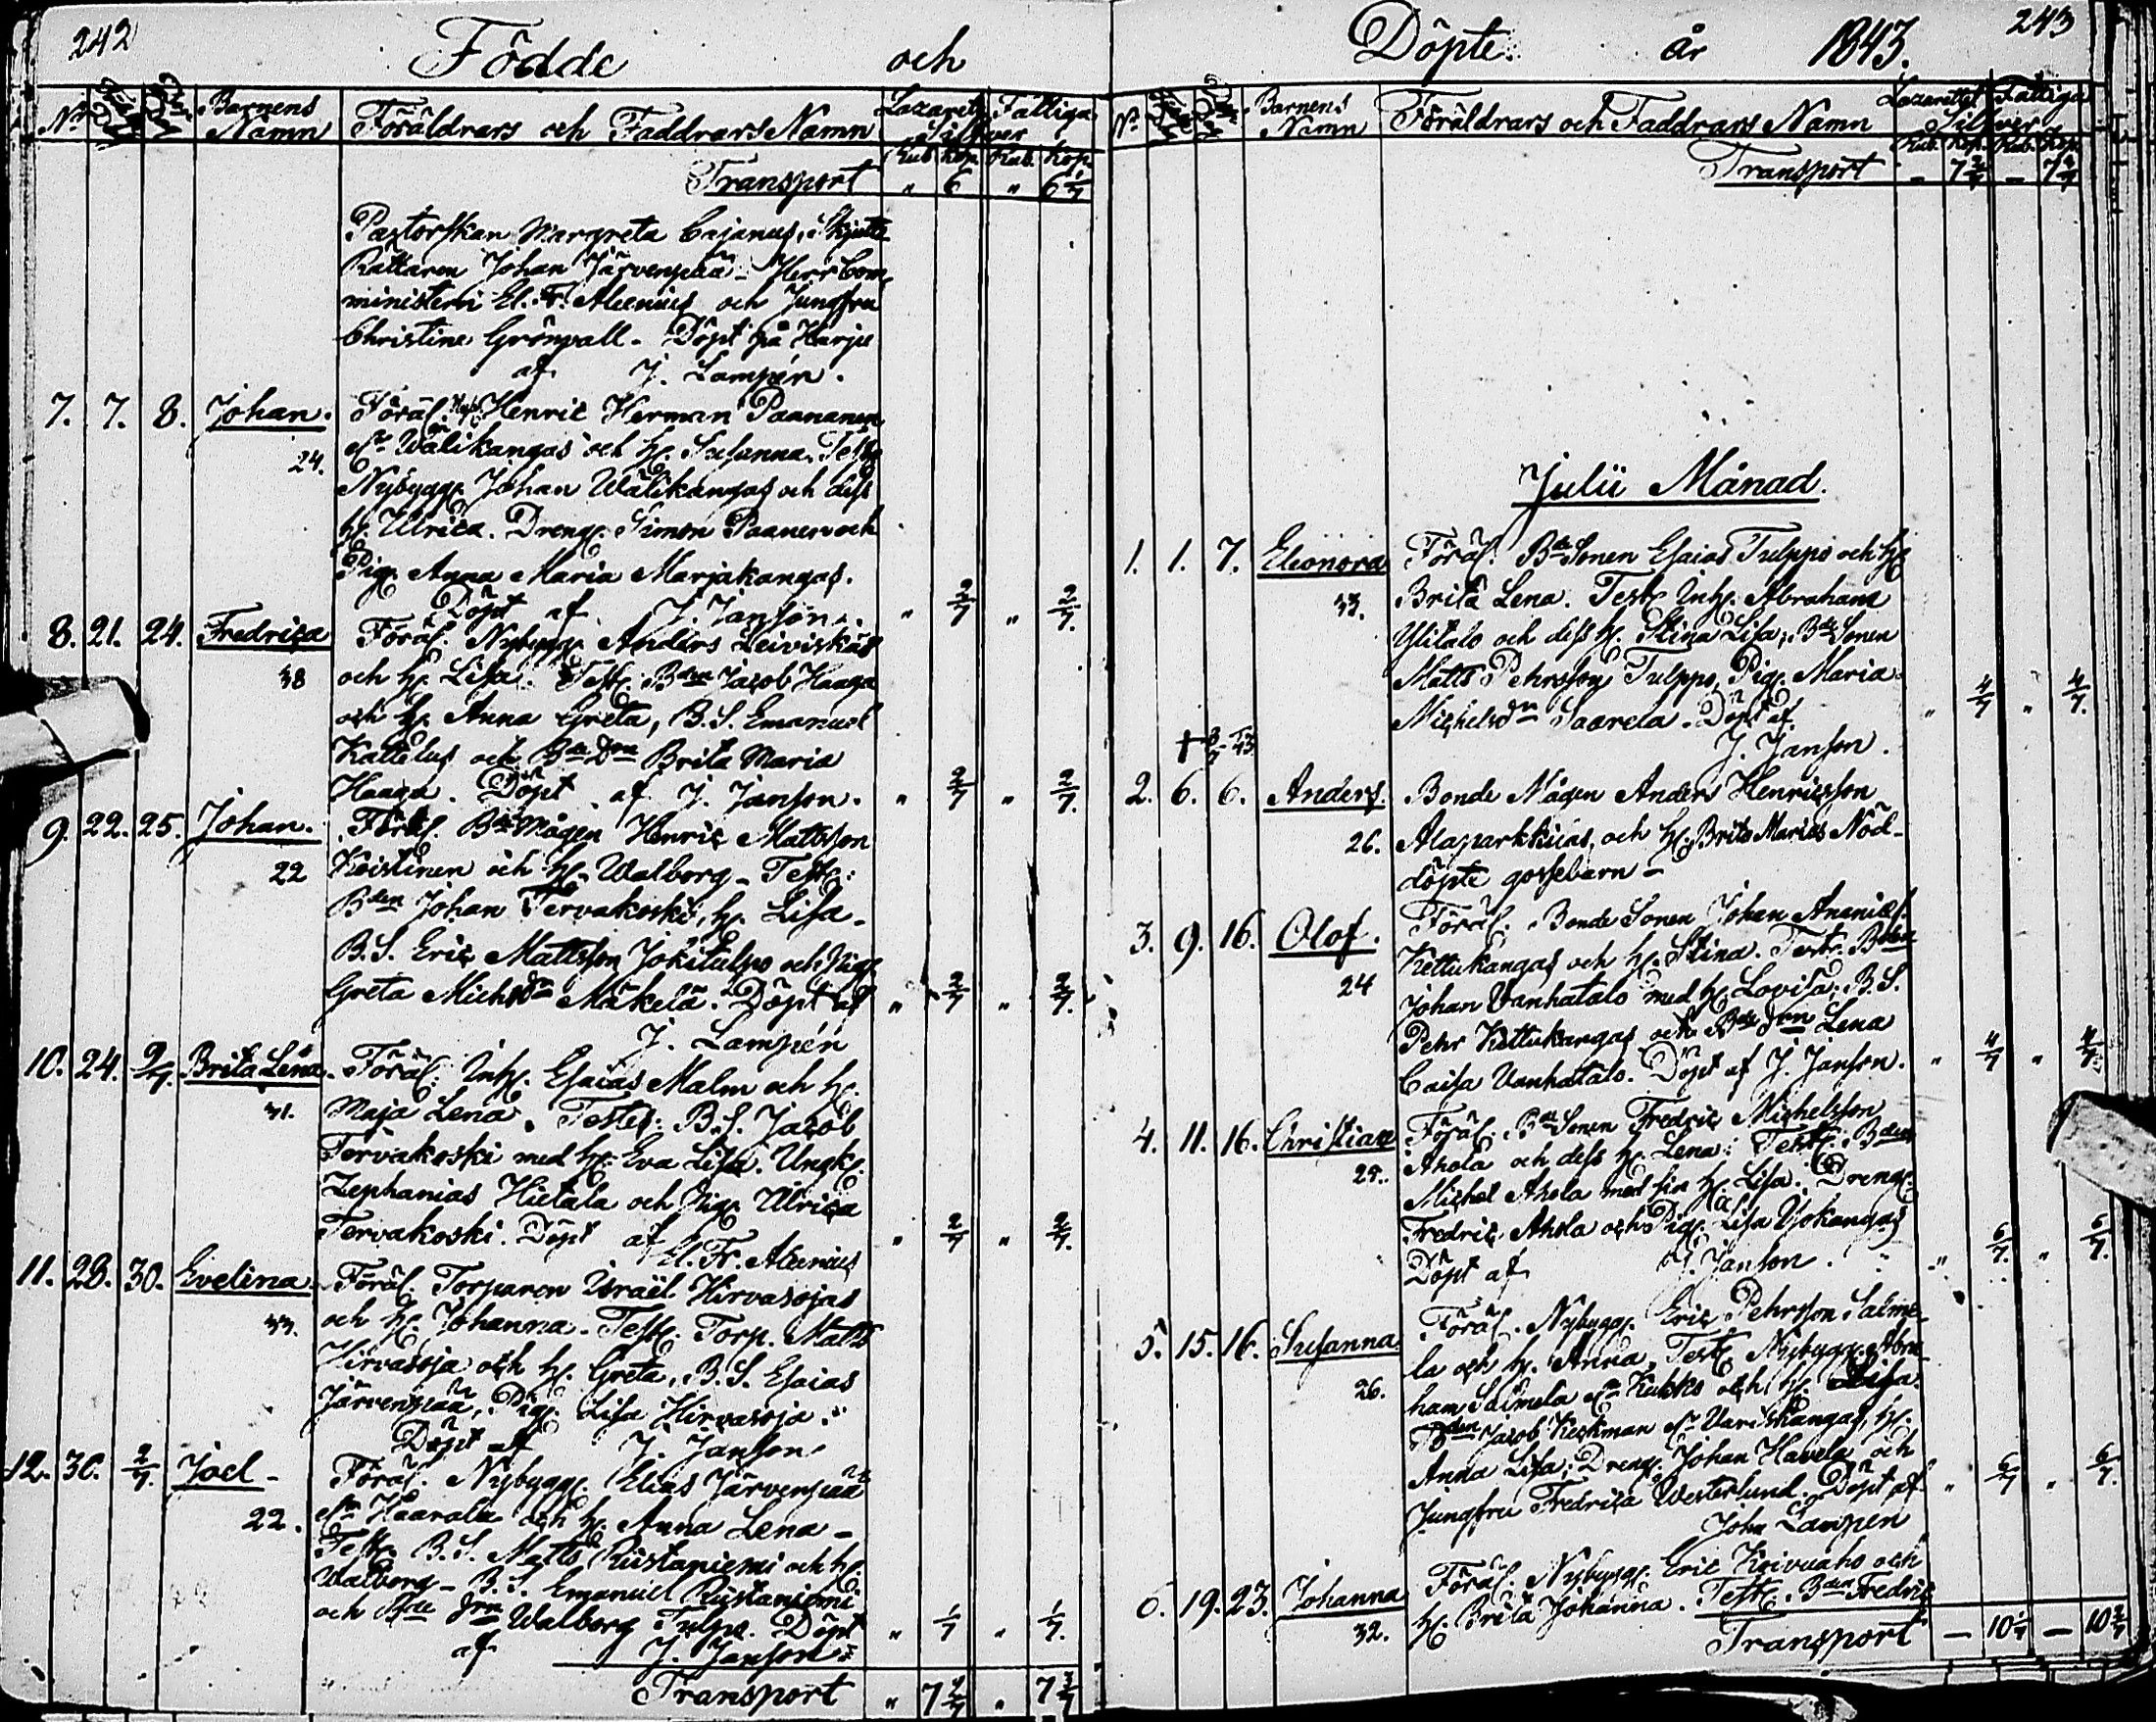 242
Födde och
No Barnens Namn Föräldrars och Faddrars Namn Lazaretts Fattiga Silfver
Rub. Kop. Rub. Kop.
Transport " 6 " 6 1/7
Pastorskan Margreta Cajanus, Skjutts
Rättaren Johan Järvenpää - Herr Com-
ministern El. Fr. Alcenius och Jungfru
Christine Grönvall - Döpt på Härje
af J. Lampén.
7. 7. 8. Johan. Föräl. Henric Herman Paananen
24. Wälikangas och h. Susanna. Test.
Nybygg. Johan Wälikangas och dess
h. Ulrica. Dreng. Simon Paanen och
Pig. Anna Maria Marjakangas.
Döpt af J. Janson. " 2/7 " 2/7.
8. 21. 24. Fredrica Föräl. Nybygg. Anders Leiviskäs
38 och h. Lisa. Test. Bden Jacob Haaga
och h. Anna Greta, B. S. Emanuel
Kattelus och Bde Don Brita Maria
Haaga. Döpt af J. Janson. " 2/7 " 2/7.
9. 22. 25. Johan. Föräl. Bde Mågen Henric Mattsson
22 Koistinen och h. Walborg - Test:
Bden Johan Tervakoski, h. Lisa -
B. S. Eric Mattsson Jokitulpo och Pig.
Greta Michsdr Mäkelä. Döpt af " 2/7 " 2/7.
J. Lampén
10. 24. 2/7. Brita Lena. Föräl. Inh. Esaias Malm och h.
31. Maja Lena. Testes: B. S. Jacob
Tervakoski med h. Eva Lisa. Ungk.
Zephanias Hietala och Pig. Ulrica
Tervakoski. Döpt af " 2/7 " 2/7.
El. Fr. Alcenius
11. 28. 30. Evelina. Föräl. Torparen Israël Hirvasojas
33. och h. Johanna. Test. Torp. Matts
Hirvasoja och h. Greta, B. S. Esaias
Järvenpää, Pig. Lisa Hirvasoja.
Döpt af J. Janson
12. 30. 2/7. Joel - Föräl. Nybygg. Elias Järvenpää
22. Haarala och h. Anna Lena -
Test. B. S. Matts Ristaniemi och h.
Walborg - B. S. Emanuel Ristaniemi
och Bde Don Walborg Tulpo. Döpt " 1/7 " 1/7.
af J. Janson
Transport " 7 2/7 " 7 3/7
Döpte år 1843. 243
No Barnens Namn Föräldrars och Faddrars Namn Lazarettet Fattiga Silfver
Rub. Kop. Rub. Kop.
Transport - 7 2/7 - 7 3/7
Julii Månad.
1. 1. 7. Eleonora Föräl. Bde Sonen Esaias Tulppo och h.
33. Brita Lena. Test. Inh. Abraham
Ylitalo och dess h. Stina Lisa, Bde Sonen
Matts Pehrsson Tulppo, Pig. Maria
Michelsdr Saarela. Döpt af " 4/7 " 4/7.
† J. Janson.
2. 6. 6. Anders. Bonde Mågen Anders Henricsson
26. Alaparkkilas, och h. Brita Marias Nöd-
döpte gossebarn -
3. 9. 16. Olof. Föräl. Bonde Sonen Johan Ananias.
24 Kettukangas och h. Stina. Test. Bden
Johan Vanhatalo med h. Lovisa, B. S.
Pehr Kettukangas och Bde Don Lena
Caisa Vanhatalo. Döpt af J. Janson. " 4/7 " 4/7.
4. 11. 16. Christian Föräl. Bde Sonen Fredric Michelsson
25. Ahola och dess h. Lena. Test. Bden
Michel Ahola med sin h. Lisa. Dreng.
Fredric Ahola och Pig. Lisa Yokangas
Döpt af J. Janson. " 6/7. " 6/7.
5. 15. 16. Susanna Föräl. Nybygg. Eric Pehrsson Salme-
26. la och h. Anna, Test. Nybygg. Abra-
ham Salmela Kukko och h. Lisa.
Bden Jacob Keckman Variskangas, h.
Anna Lisa, Dreng. Johan Havela och
Jungfru Fredrica Westerlund. Döpt af " 6/7 " 6/7.
Joh. Lampén
6. 19. 23. Johanna Föräl. Nybygg. Eric Koivuaho och
32. h. Brita Johanna. Test. Bden Fredric
Transport - 10 1/7 - 10 2/7